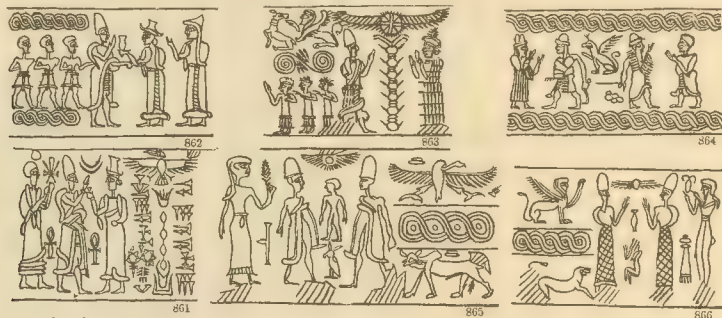 862
863
864
861
865
866